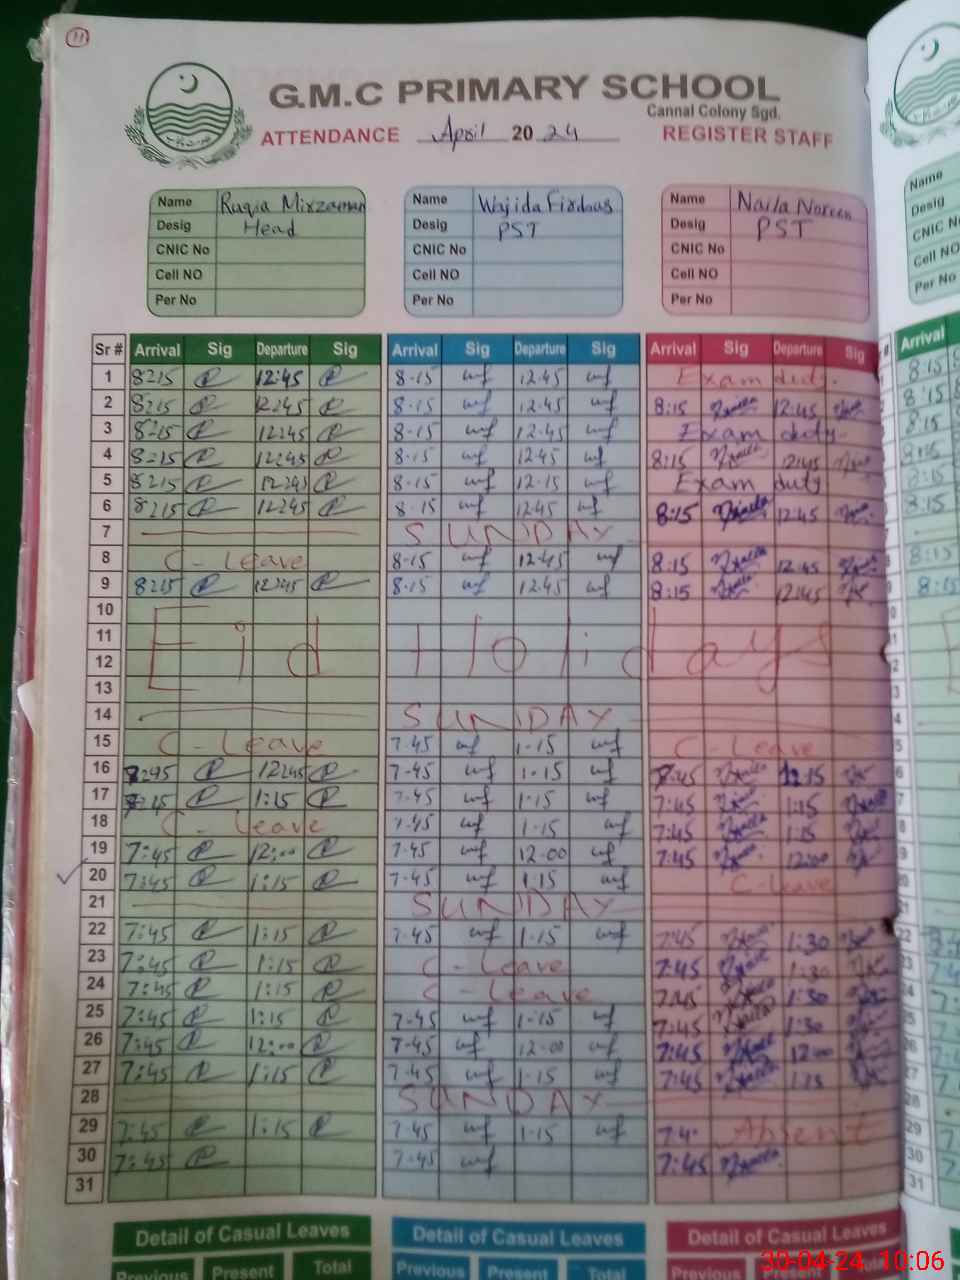 11
G.M.C PRIMARY SCHOOL
Cannal Colony Sgd.
ATTENDANCE April 2024 REGISTER STAFF
Name Ruqia Mirzaman Name Wajida Firdous Name Naila Noreen
Desig Head Desig PST Desig PST
CNIC No CNIC No CNIC No
Cell NO Cell NO Cell NO
Per No Per No Per No
Sr # Arrival Sig Departure Sig Arrival Sig Departure Sig Arrival Sig Departure Sig
1 8:15 12:45 8-15 wf 12-45 wf Exam duty.
2 8:15 12:45 8-15 wf 12-45 wf 8:15 Naila 12:45
3 8:15 12:45 8-15 wf 12-45 wf Exam duty.
4 8:15 12:45 8-15 wf 12-45 wf 8:15 Naila 12:45
5 8:15 12:45 8-15 wf 12-15 wf Exam duty
6 8:15 12:45 8-15 wf 12-45 wf 8:15 Naila 12:45
7 SUNDAY
8 C-Leave 8-15 wf 12-45 wf 8:15 Naila 12:45
9 8:15 12:45 8-15 wf 12-45 wf 8:15 12:45
10
11 Eid Holidays
12
13
14 SUNDAY
15 C-Leave 7-45 wf 1-15 wf C-Leave
16 12:45 7-45 wf 1-15 wf 7:45 Naila
17 1:15 7-45 wf 1-15 wf 7:45 1:15
18 C-Leave 7-45 wf 1-15 wf 7:45 Naila 1:15
19 7:45 12:00 7-45 wf 12-00 wf 7:45 12:00
20 7:45 1:15 7-45 wf 1-15 wf C-Leave
21 SUNDAY
22 7:45 1:15 7-45 wf 1-15 wf 7:45 1:30
23 7:45 1:15 C-Leave 7:45 1:30
24 7:45 1:15 C-Leave 7:45 1:30
25 7:45 1:15 7-45 wf 1-15 wf 7:45 Naila 1:30
26 7:45 12:00 7-45 wf 12-00 wf 7:45 12:00
27 7:45 1:15 7-45 wf 1-15 wf 7:45 1:15
28 SUNDAY
29 7:45 1:15 7-45 wf 1-15 wf 7:4 Absent
30 7:45 7-45 wf 7:45 Naila
31
Detail of Casual Leaves Detail of Casual Leaves Detail of Casual Leaves
Previous Present Total Previous Present Total Previous Present Total
Name
Desig
CNIC N
Cell NO
Per No
Arrival
8:15
30-04-24 10:06